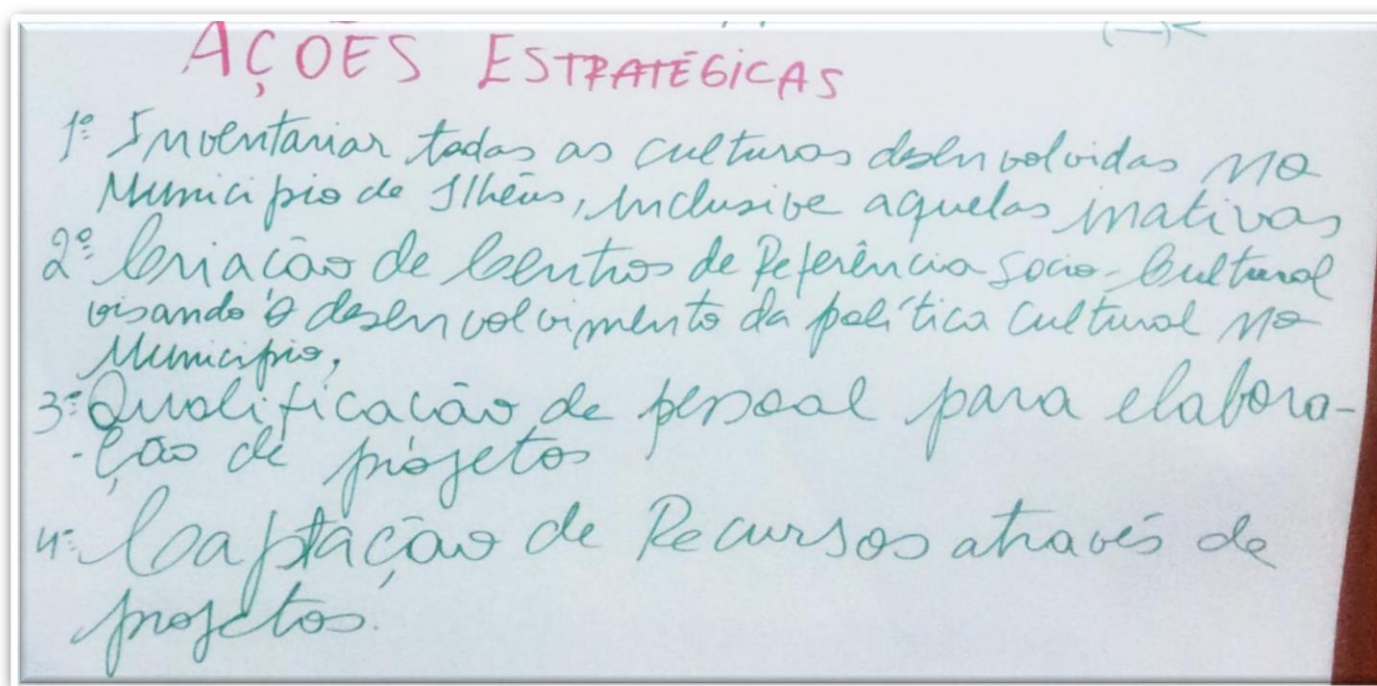 AÇOES ESTRATÉGICAS
1º Inventariar todas as culturas desenvolvidas no
Municipio de Ilhéus, inclusive aquelas inativas
2º Criação de Centros de Referência Socio-Cultural
visando o desenvolvimento da política Cultural no
Municipio,
3º Qualificação de pessoal para elabora-
-ção de projetos
4º Captação de Recursos através de
projetos.